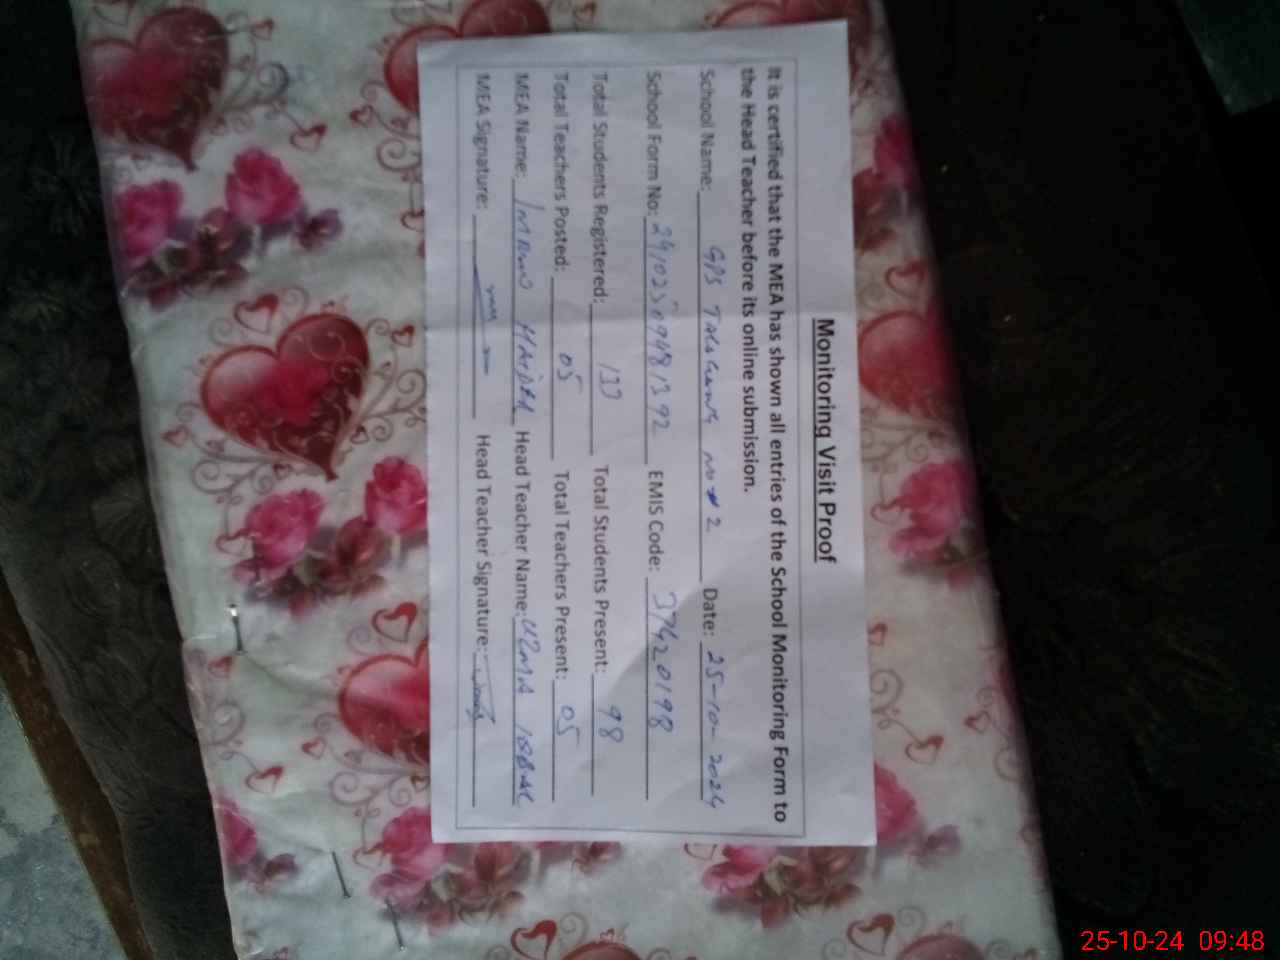 Monitoring Visit Proof
It is certified that the MEA has shown all entries of the School Monitoring Form to
the Head Teacher before its online submission.
School Name: GPS No # 2 Date: 25-10-2024
School Form No: EMIS Code: 37420198
Total Students Registered: Total Students Present: 98
Total Teachers Posted: 05 Total Teachers Present: 05
MEA Name: Imran Haider Head Teacher Name: UZMA IQBAL
MEA Signature: Head Teacher Signature:
25-10-24 09:48